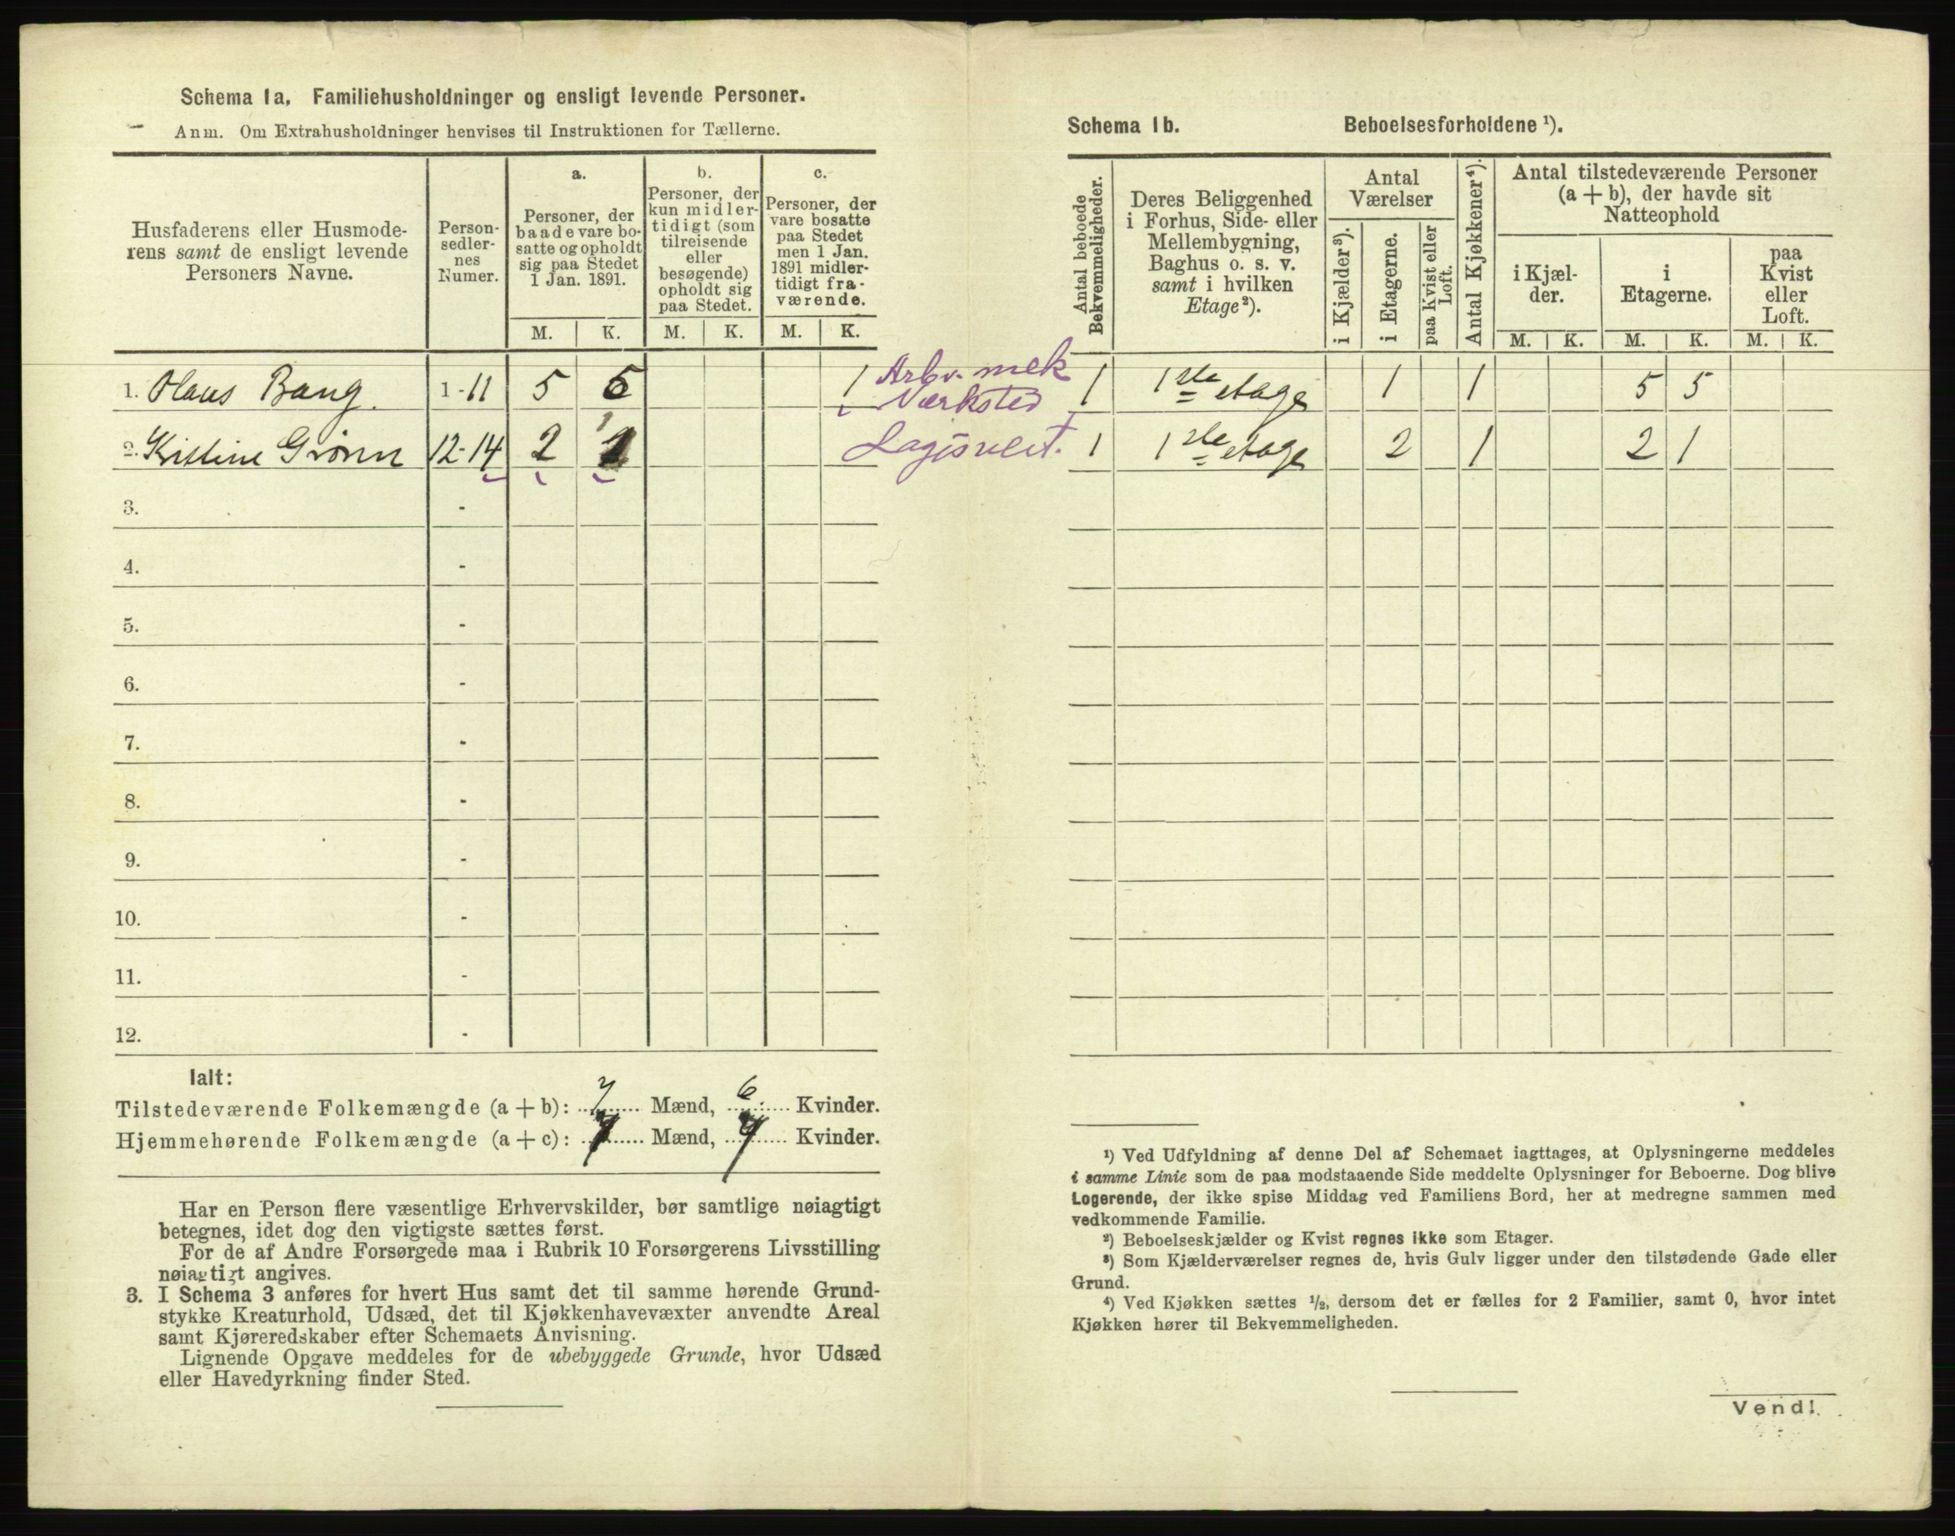 Schema 1a. Familiehusholdninger og ensligt levende Personer.
Anm. Om Extrahusholdninger henvises til Instruktionen for Tællerne.
Husfaderens eller Husmode-
rens samt de ensligt levende
Personers Navne.
Person-
sedler-
nes
Numer.
a.
Personer, der
baade vare bo-
satte og opholdt
sig paa Stedet
1 Jan. 1891.
b.
Personer, der
kun midler-
tidigt (som
tilreisende
eller
besøgende)
opholdt sig
paa Stedet.
c.
Personer, der
vare bosatte
paa Stedet
men 1 Jan.
1891 midler-
tidigt fra-
værende.
M. K. M. K. M. K.
1. Hans Bang. 1-11 5 5 1
2. Kristine Grønn 12-14 2 1
3. -
4. -
5. -
6. -
7. -
8. -
9. -
10. -
11. -
12. -
Ialt:
Tilstedeværende Folkemængde (a + b): 7 Mænd, 6 Kvinder.
Hjemmehørende Folkemængde (a + c): 7 Mænd, 7 Kvinder.
Har en Person flere væsentlige Erhvervskilder, bør samtlige nøiagtigt
betegnes, idet dog den vigtigste sættes først.
For de af Andre Forsørgede maa i Rubrik 10 Forsørgerens Livsstilling
nøiagtigt angives.
3. I Schema 3 anføres for hvert Hus samt det til samme hørende Grund-
stykke Kreaturhold, Udsæd, det til Kjøkkenhavevæxter anvendte Areal
samt Kjøreredskaber efter Schemaets Anvisning.
Lignende Opgave meddeles for de ubebyggede Grunde, hvor Udsæd
eller Havedyrkning finder Sted.
Schema 1b. Beboelsesforholdene ¹).
Antal beboede
Bekvemmeligheder.
Deres Beliggenhed
i Forhus, Side- eller
Mellembygning,
Baghus o. s. v.
samt i hvilken
Etage²).
Antal
Værelser
i Kjælder³).
i Etagerne.
paa Kvist eller
Loft.
Antal Kjøkkener⁴).
Antal tilstedeværende Personer
(a + b), der havde sit
Natteophold
i Kjæl-
der.
i
Etagerne.
paa
Kvist
eller
Loft.
M. K. M. K. M. K.
Arbv. mek
Værksted
1 1ste etage 1 1 5 5
1 1ste etage 2 1 2 1
¹) Ved Udfyldning af denne Del af Schemaet iagttages, at Oplysningerne meddeles
i samme Linie som de paa modstaaende Side meddelte Oplysninger for Beboerne. Dog blive
Logerende, der ikke spise Middag ved Familiens Bord, her at medregne sammen med
vedkommende Familie.
²) Beboelseskjælder og Kvist regnes ikke som Etager.
³) Som Kjælderværelser regnes de, hvis Gulv ligger under den tilstødende Gade eller
Grund.
⁴) Ved Kjøkken sættes ½, dersom det er fælles for 2 Familier, samt 0, hvor intet
Kjøkken hører til Bekvemmeligheden.
Vend!